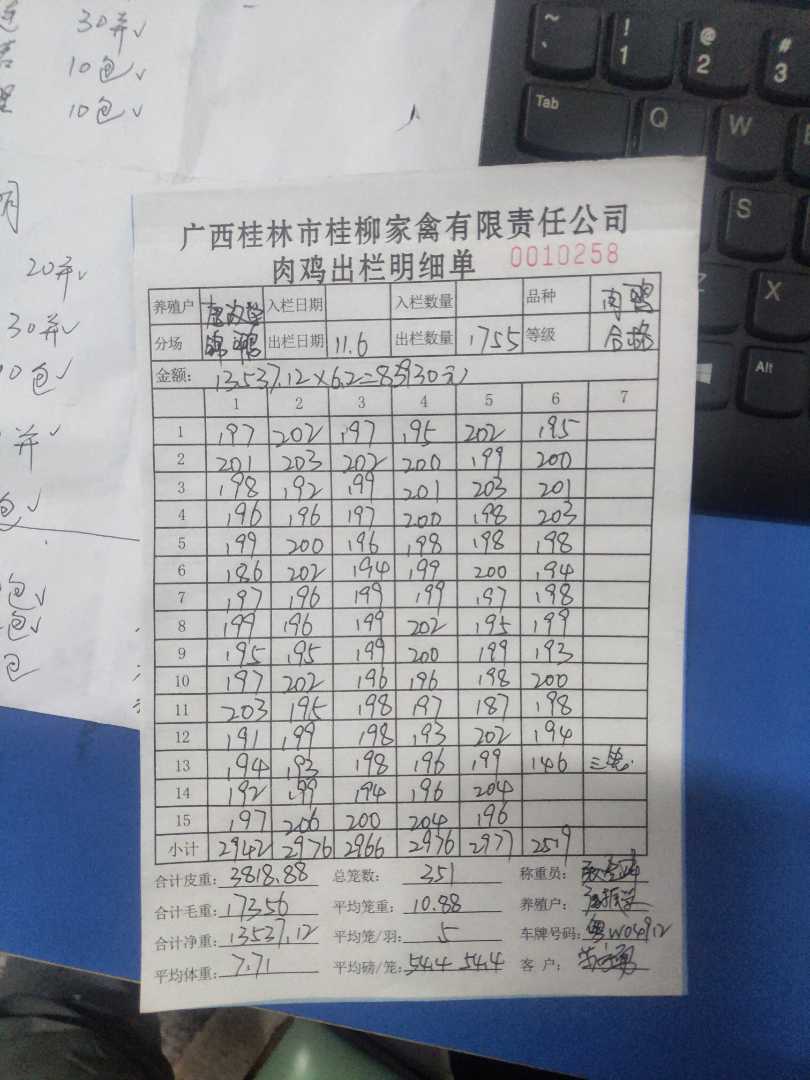 30斤√
10包√
10包√
20斤√
30斤√
10包√
斤√
包√
包√
包√
包
~ ` ! 1 @ 2 # 3
Tab Q W
S
Z X
Alt
广西桂林市桂柳家禽有限责任公司
肉鸡出栏明细单 0010258
养殖户 入栏日期 入栏数量 品种 肉鸭
分场 出栏日期 11.6 出栏数量 1755 等级 合格
金额: 13537.12×6.2=83930元
1 2 3 4 5 6 7
1 197 202 197 195 202 195
2 201 203 202 200 199 200
3 198 192 199 201 203 201
4 196 196 197 200 198 203
5 199 200 196 198 198 198
6 186 202 194 199 200 194
7 197 196 199 199 197 198
8 199 196 199 202 195 199
9 195 195 199 200 199 193
10 197 202 196 196 198 200
11 203 195 198 197 187 198
12 191 199 198 193 202 194
13 194 193 198 196 199 146 三笼
14 192 199 194 196 204
15 197 206 200 204 196
小计 2942 2976 2966 2976 2977 2519
合计皮重: 3818.88 总笼数: 351 称重员:
合计毛重: 17356 平均笼重: 10.88 养殖户:
合计净重: 13537.12 平均笼/羽: 5 车牌号码: 粤W04912
平均体重: 7.71 平均磅/笼: 54.4 54.4 客户: